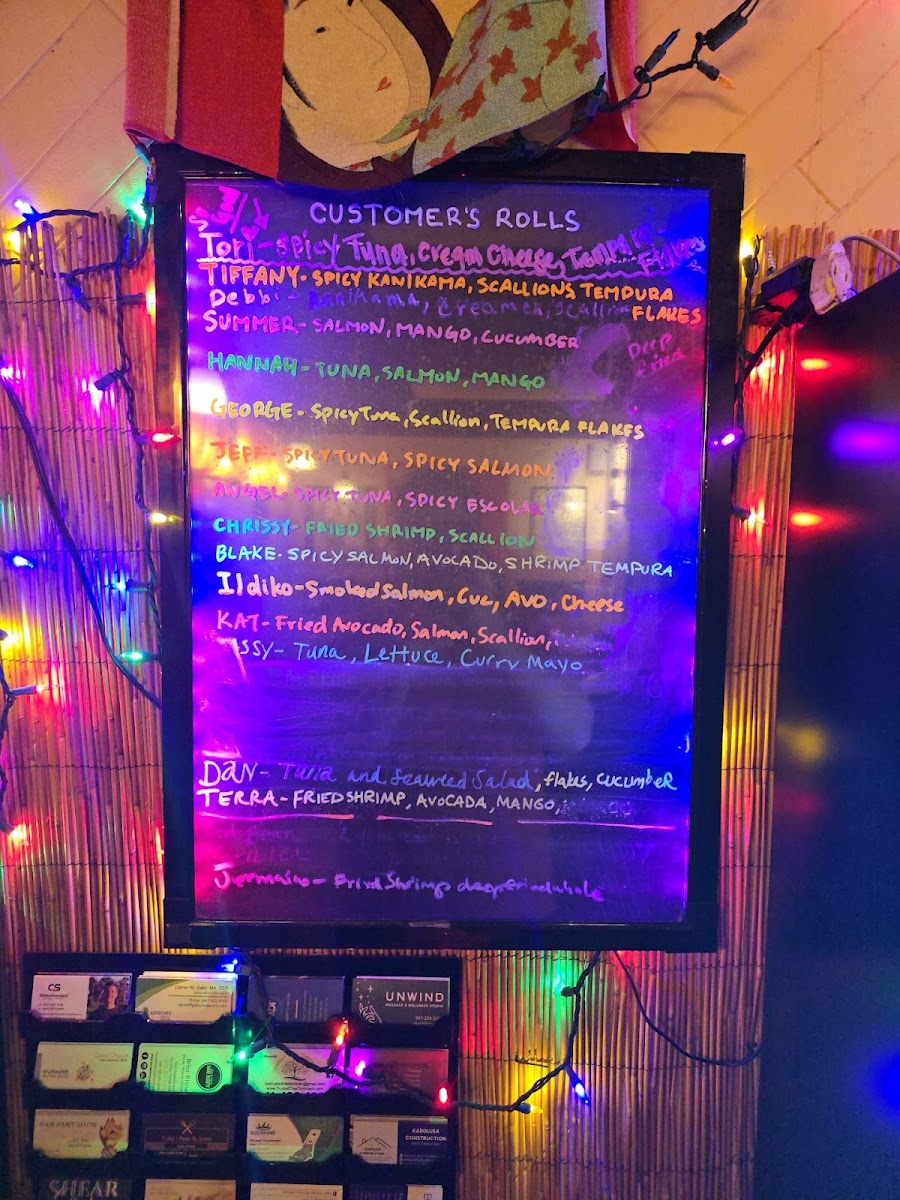 CUSTOMER'S ROLLS
Tori - Spicy Tuna, Cream Cheese, Tempura Flakes
TIFFANY - SPICY KANIKAMA, SCALLIONS, TEMPURA
FLAKES
Debbi - Kanikama, Cream ch, Scallion
SUMMER - SALMON, MANGO, CUCUMBER
Deep
Fried
HANNAH - TUNA, SALMON, MANGO
GEORGE - SPICY Tuna, Scallion, TEMPURA FLAKES
JEFF - SPICY TUNA, SPICY SALMON
ANGEL - SPICY TUNA, SPICY ESCOLAR
CHRISSY - FRIED SHRIMP, SCALLION
BLAKE - SPICY SALMON, AVOCADO, SHRIMP TEMPURA
Ildiko - Smoked Salmon, Cuc, AVO, Cheese
KAT - Fried Avocado, Salmon, Scallion,
SSY - Tuna, Lettuce, Curry Mayo
DAN - Tuna and Seaweed Salad, flakes, CUCUMBER
TERRA - FRIED SHRIMP, AVOCADA, MANGO,
Jermaine - Fried Shrimp deepfried whole
CS
UNWIND
truhealth
HAIR HABIT SALON
KAROLUSA
CONSTRUCTION
SHEAR